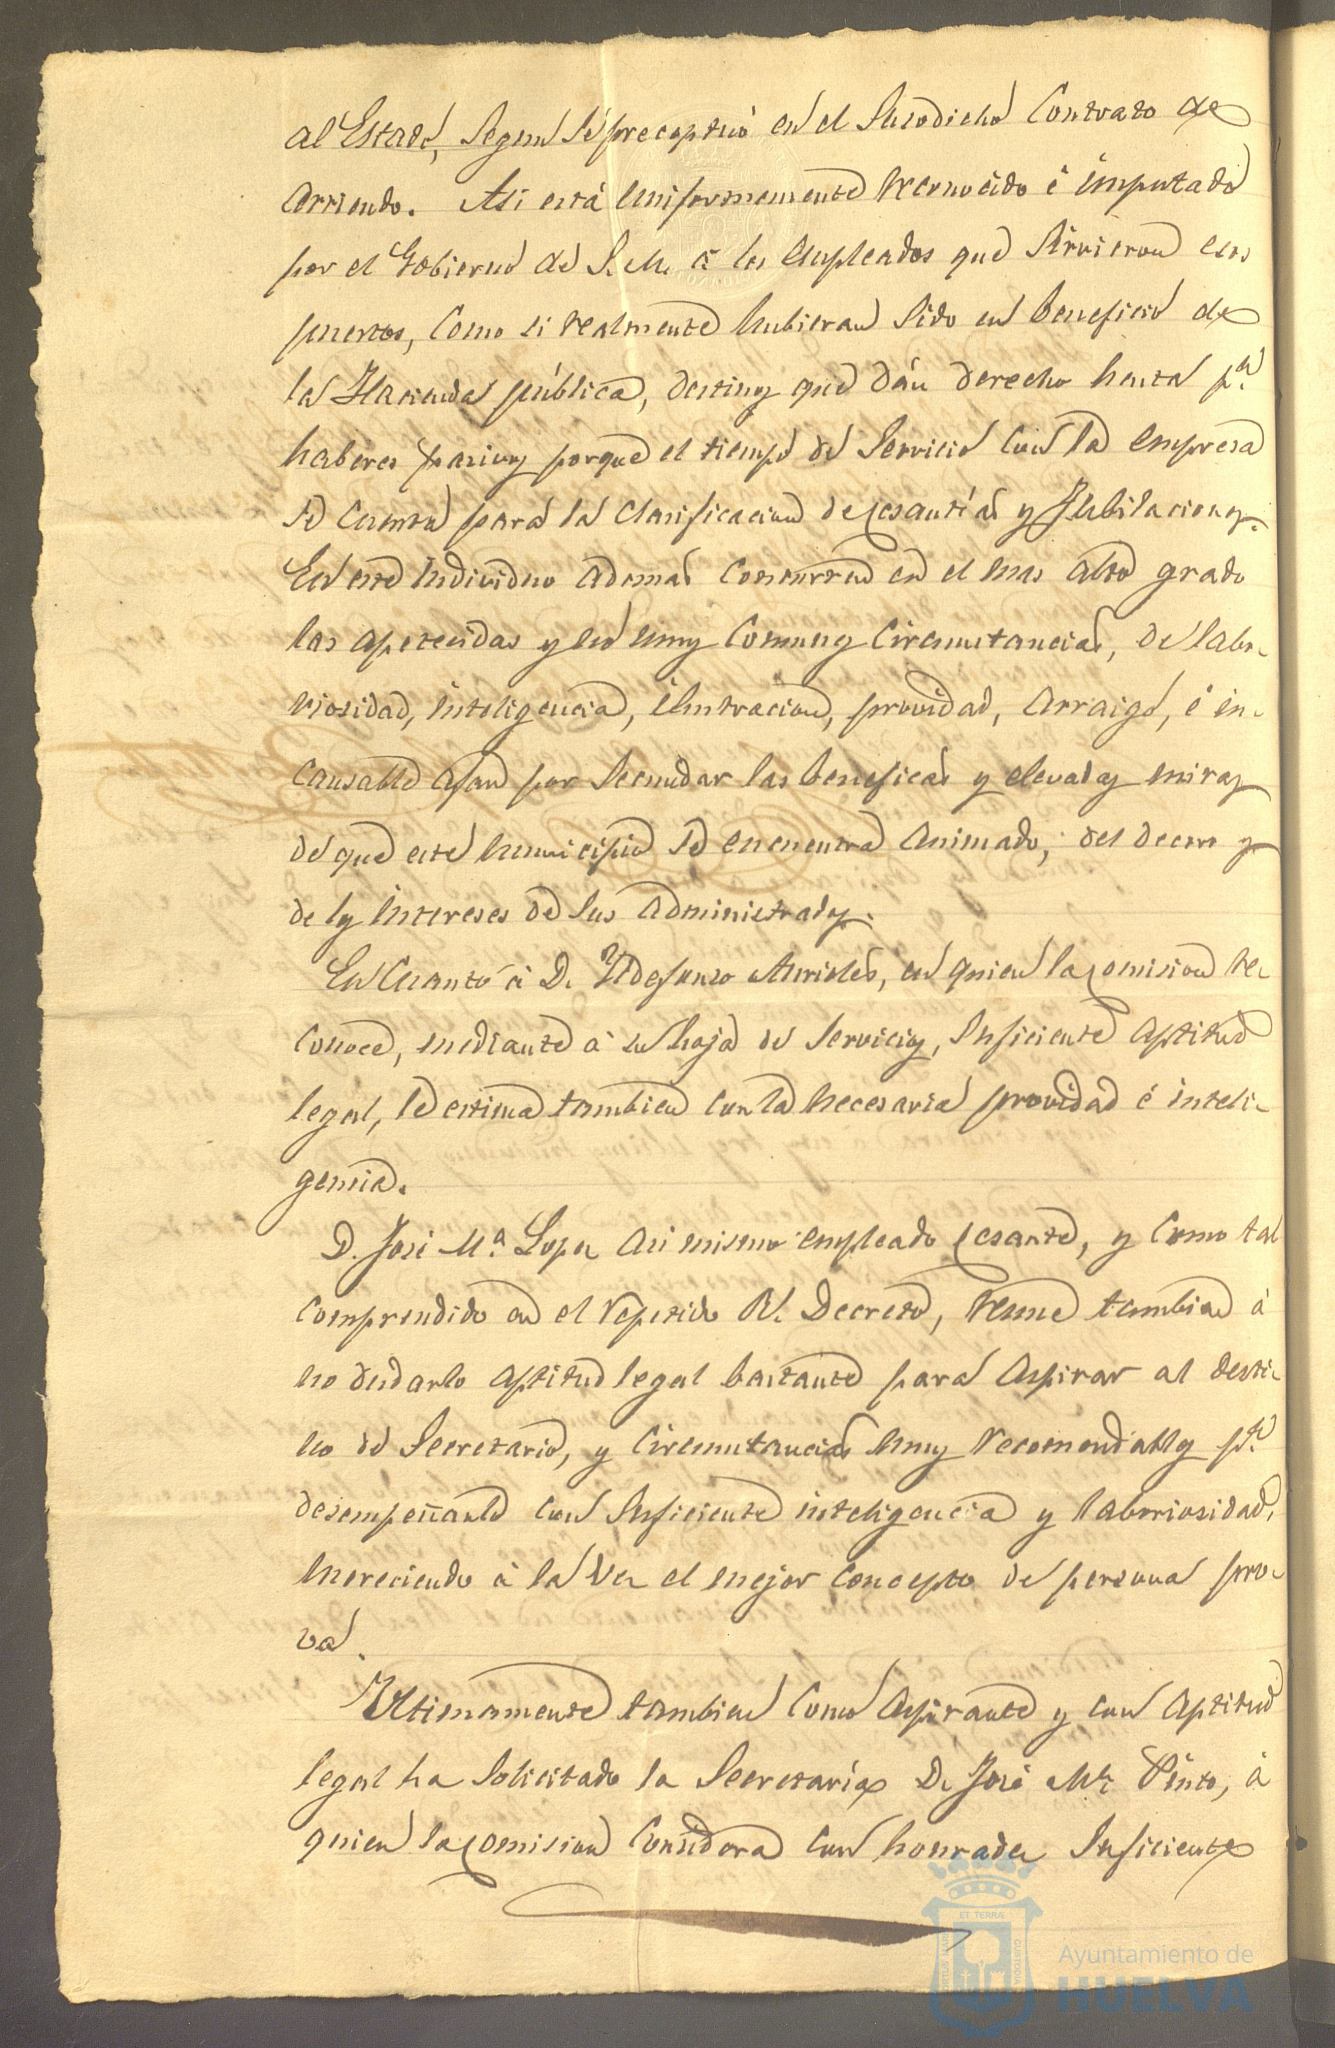 al Estado, segun se preceptuó en el susodicho contrato de
arriendo. Asi está uniformemente reconocido é imputado
por el Gobierno de S. M. á los empleados que sirvieron esos
puertos, como si realmente hubieran sido en beneficio de
la Hacienda pública, destinos que dán derecho hasta p.ª
haberes pasivos porque el tiempo de servicio con la empresa
se cuenta para la clasificacion de cesantías y jubilaciones.
En este individuo ademas concurren en el mas alto grado
las apetecidas y no muy comunes circunstancias, de labo-
riosidad, inteligencia, ilustracion, providad, arraigo, é in-
cansable afan por secundar las beneficas y elevadas miras
de que este municipio se encuentra animado, del decoro y
de los intereses de sus administrados.
En cuanto á D. Yldefonso Aurioles, en quien la comision re-
conoce, mediante á su hoja de servicios, suficiente aptitud
legal, le estima tambien con la necesaria providad é inteli-
gencia.
D. José M.ª Lopez asi mismo empleado cesante, y como tal
comprendido en el repetido Rl. Decreto, reune tambien á
no dudarlo aptitud legal bastante para aspirar al desti-
no de Secretario, y circunstancias muy recomendables p.ª
desempeñarlo con suficiente inteligencia y laboriosidad,
mereciendo á la vez el mejor concepto de persona pro-
va.
Ultimamente tambien como aspirante y con aptitud
legal ha solicitado la Secretaría D. José M.ª Pinto, á
quien la comision considera con honradez suficiente
Ayuntamiento de
HUELVA